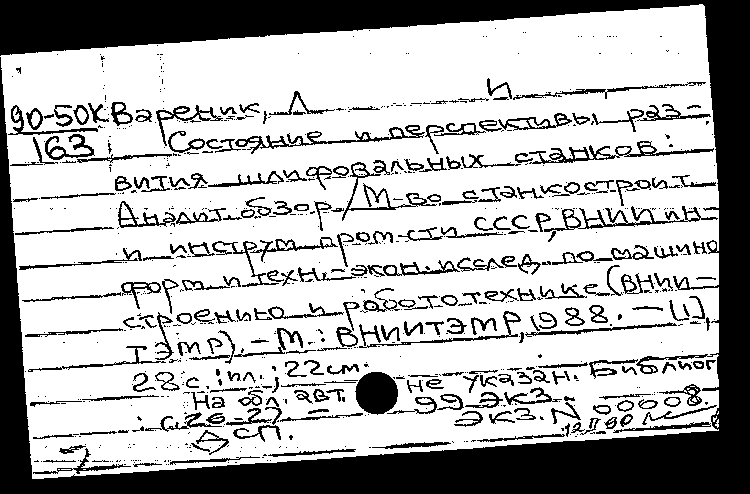 90-50К Вареник, Л И
163 Состояние и перспективы раз-
вития шлифовальных станков:
Аналит. обзор / М-во станкостроит.
и инструм. пром-сти СССР, ВНИИ ин-
форм. и техн.-экон. исслед. по машино
строению и робототехнике (ВНИИ-
ТЭМР). - М.: ВНИИТЭМР, 1988. - [1],
28 с.: ил.; 22 см.
На обл. авт. не указан. Библиог
: с. 26-27 - 99 экз.
СП. ЭКЗ. N 00008.
12 II 90